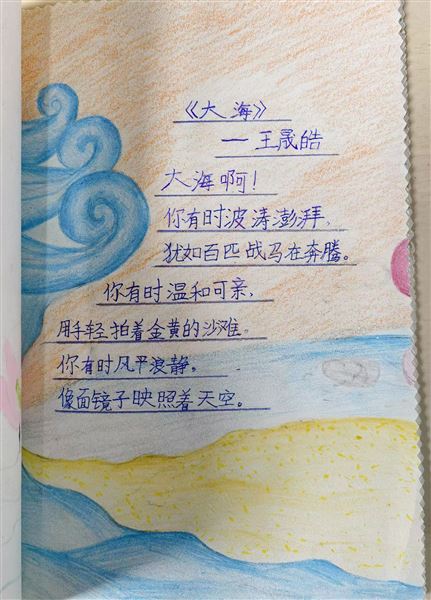 《大海》
—王晟皓
大海啊!
你有时波涛澎湃,
犹如百匹战马在奔腾。
你有时温和可亲,
用手轻拍着金黄的沙滩。
你有时风平浪静,
像面镜子映照着天空。